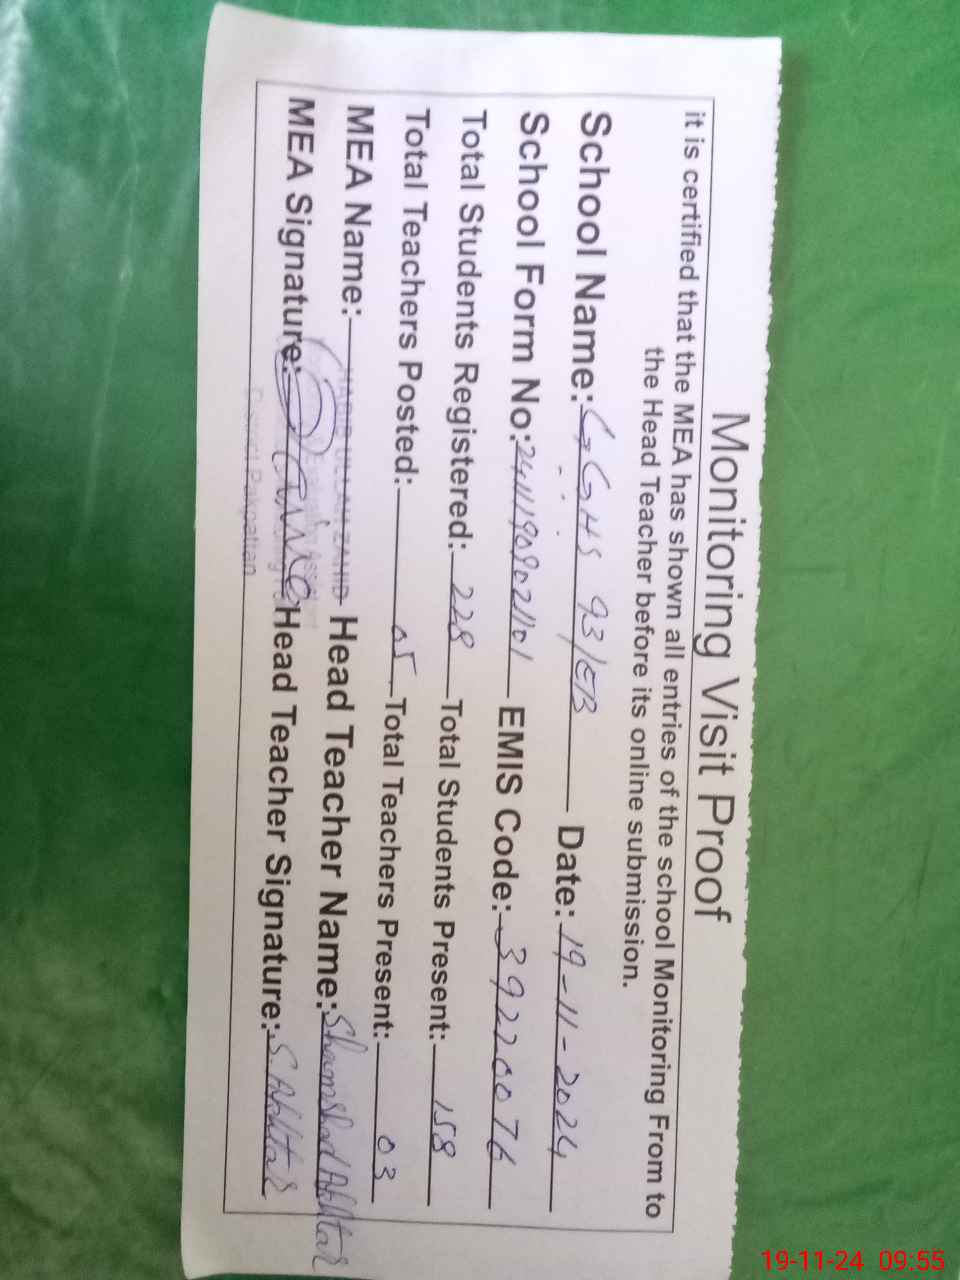 Monitoring Visit Proof
it is certified that the MEA has shown all entries of the school Monitoring From to
the Head Teacher before its online submission.
School Name: GGHS 93/EB Date: 19-11-2024
School Form No: EMIS Code: 39220076
Total Students Registered: 228 Total Students Present: 158
Total Teachers Posted: 05 Total Teachers Present: 03
MEA Name: HABIB ULLAH ZAHID Head Teacher Name: Shamshad Akhtar
MEA Signature: Head Teacher Signature: S. Akhtar
District Pakpattan
19-11-24 09:55